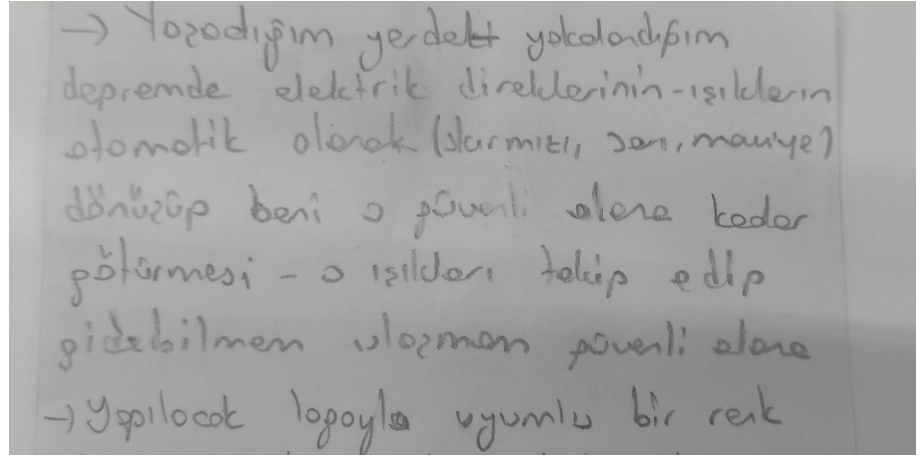 → Yaşadığım yerde yakalandığım
depremde elektrik direklerinin-ışıkların
otomatik olarak (kırmızı, sarı, maviye)
dönüşüp beni o güvenli alana kadar
götürmesi - o ışıkları takip edip
gidebilmem ulaşmam güvenli alana
→ Yapılacak logoyla uyumlu bir renk